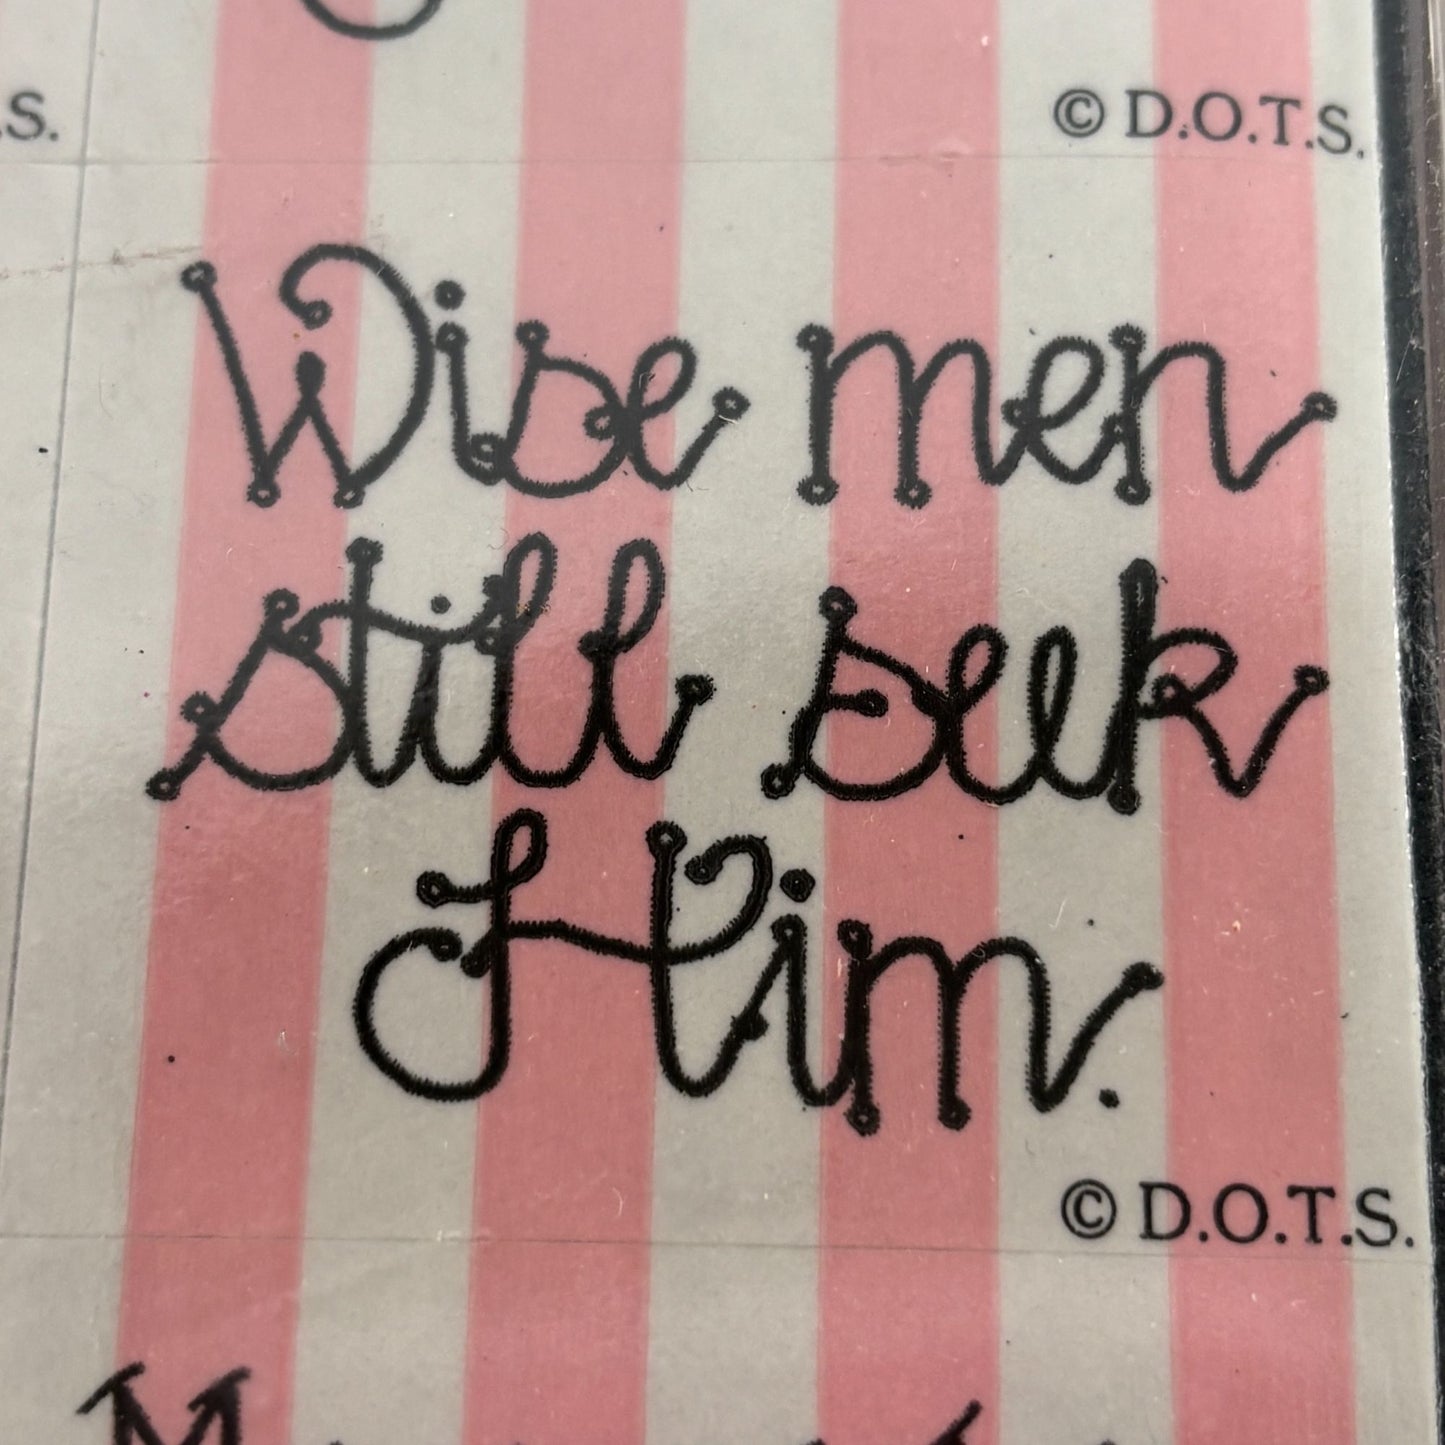 .S.
© D.O.T.S.
Wise men
still seek
Him.
© D.O.T.S.